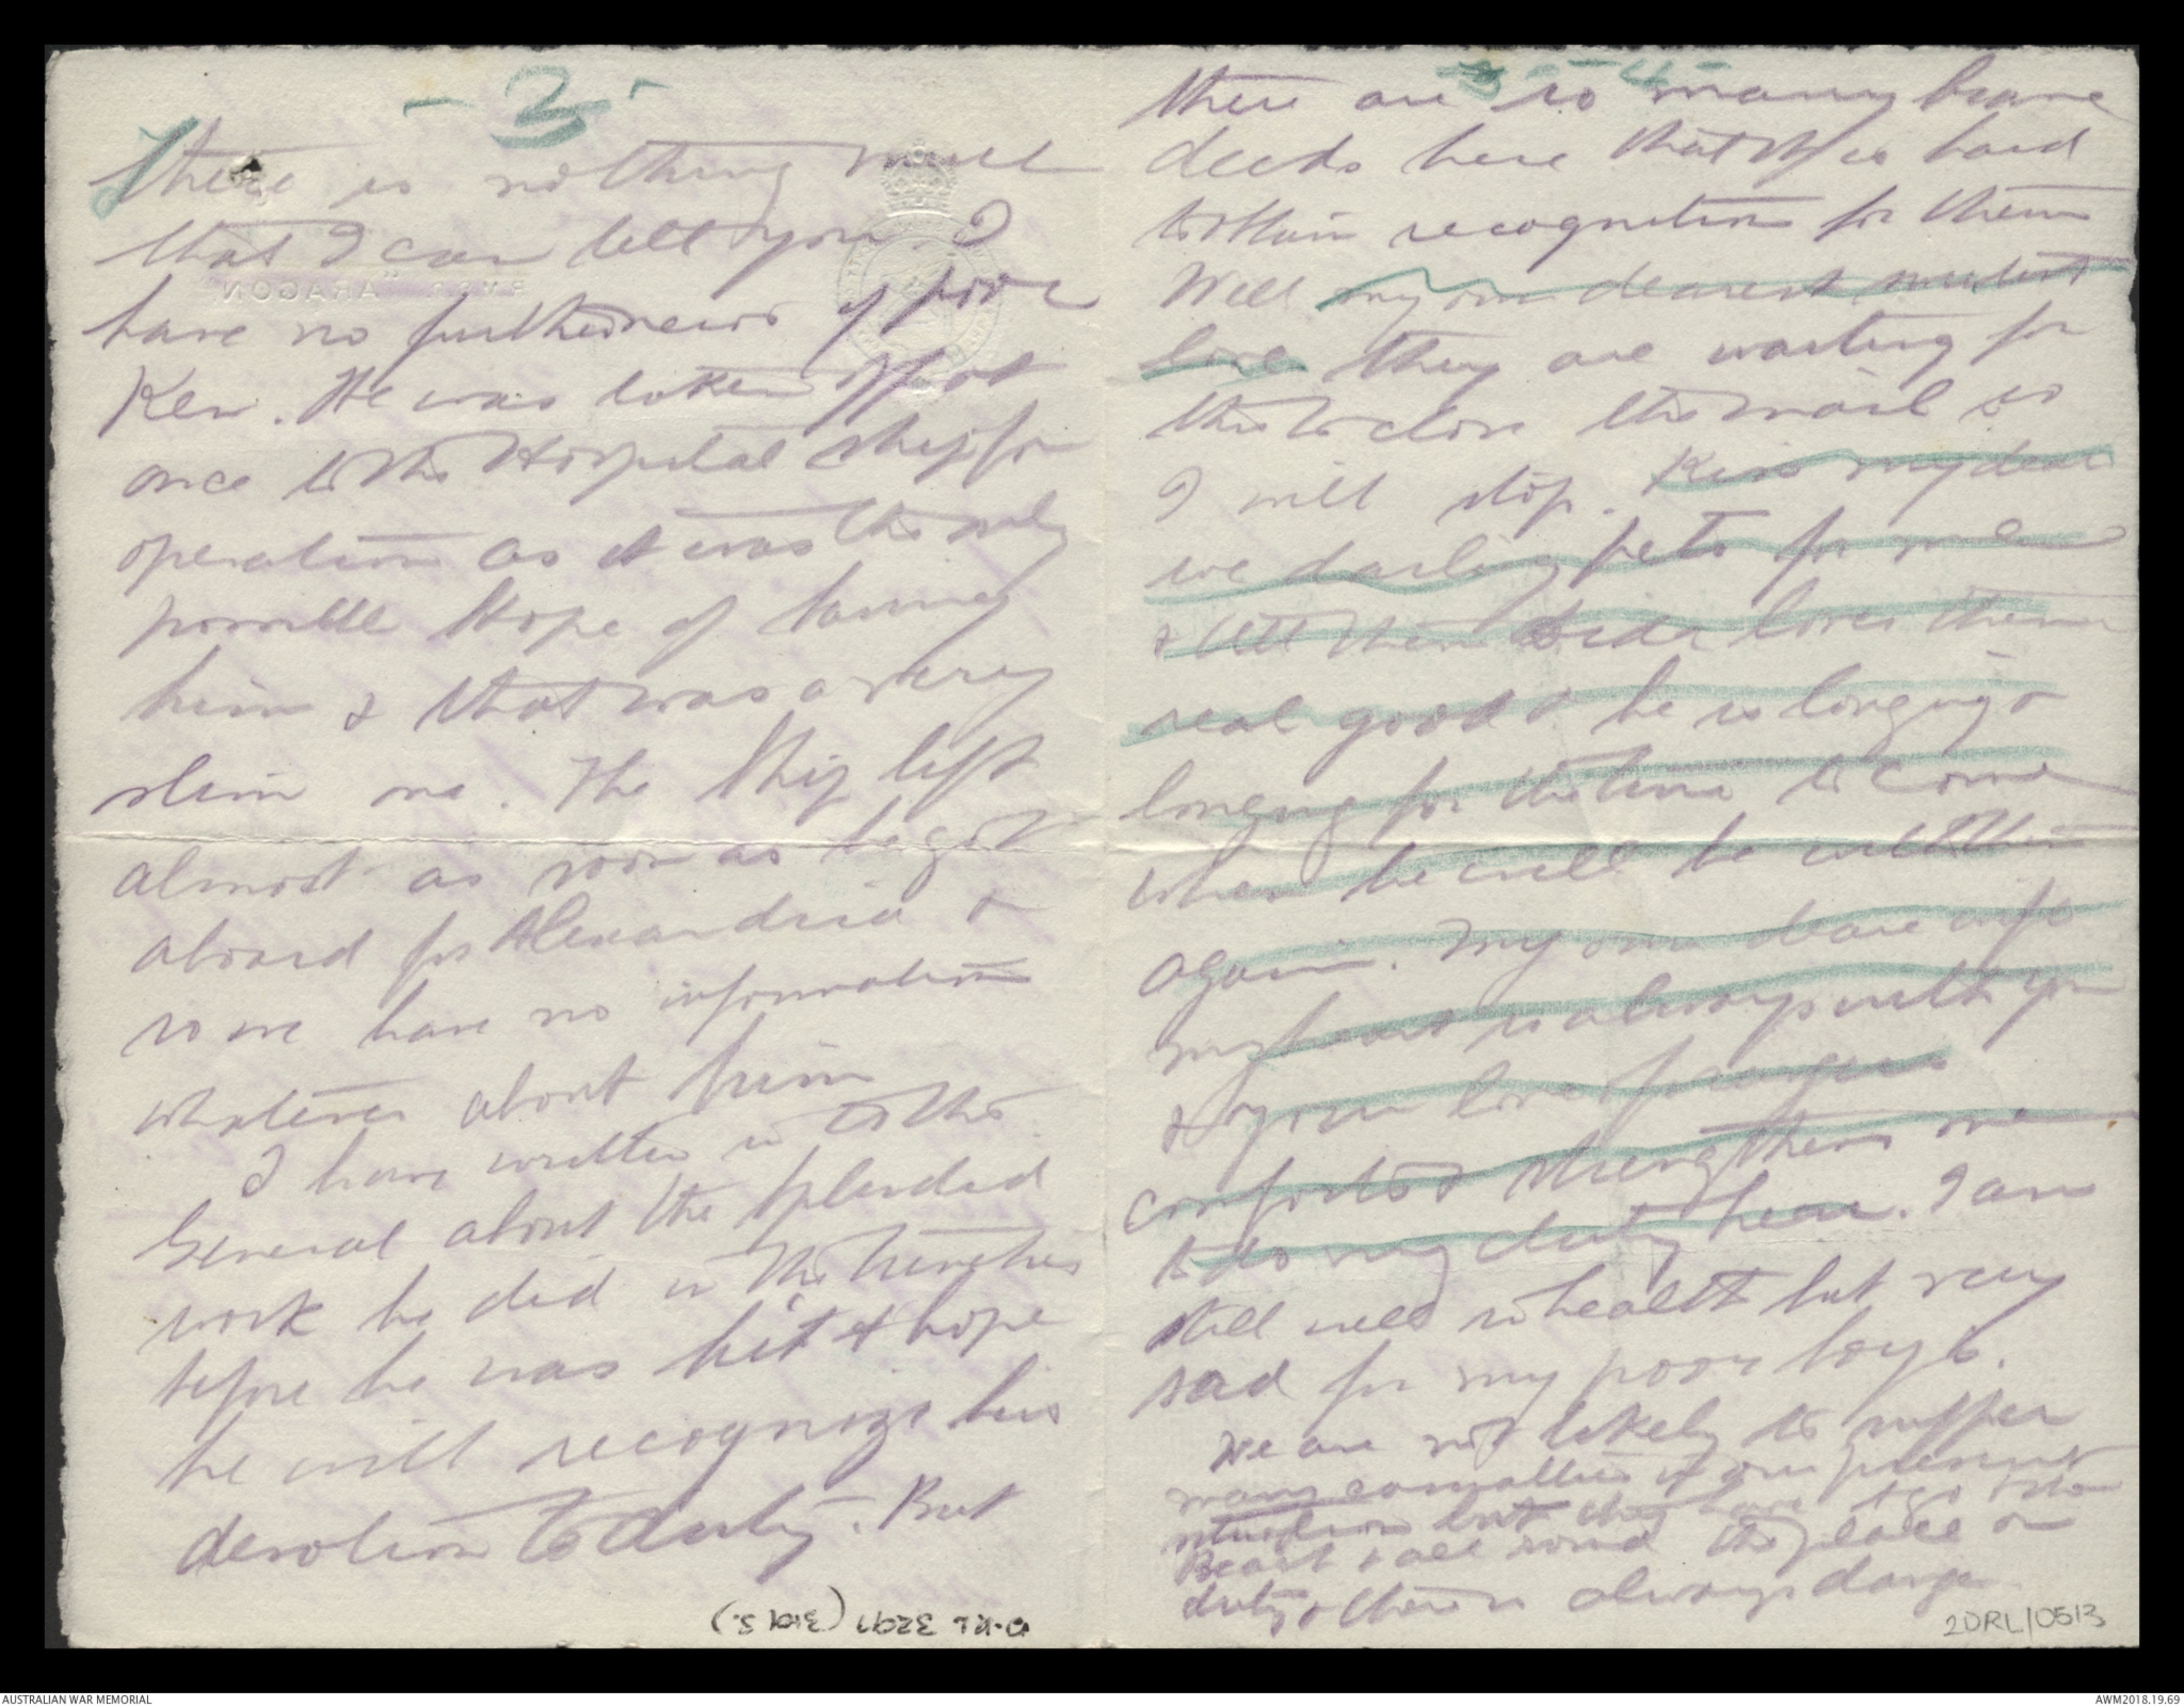 - 3 -
There is nothing much
that I can tell you. I
have no further news of poor
Ken. He was taken off at
once to the Hospital ship for
operation as it was the only
possible Hope of saving
him & that was a very
slim one. The Ship left
almost as soon as he got
aboard for Alexandria &
so we have no information
whatever about him
I have written in to the
General about the splendid
work he did in the trenches
before he was hit & hope
he will recognize his
devotion to duty. But
- 4 -
there are so many brave
deeds here that it is hard
to obtain recognition for them
Well my own dearest sweetest
love they are waiting for
this to close the mail so
I will stop. Kiss my dear
wee darling pets for me
& tell them dada loves them
real good & he is longing &
longing for the time to come
when he will be with them
again. My own dear wife
my heart is always with you
& your love & prayers
comforts & strengthens me
to do my duty here. I am
still well in health but very
sad for my poor boys.
We are not likely to suffer
many casualties in our present
situation but they have to go to the
Beach & all round the place on
duty & there is always danger
D.R.L 3297 (3rd S.)
2DRL/0513
ARAGON
AUSTRALIAN WAR MEMORIAL
AWM2018.19.69